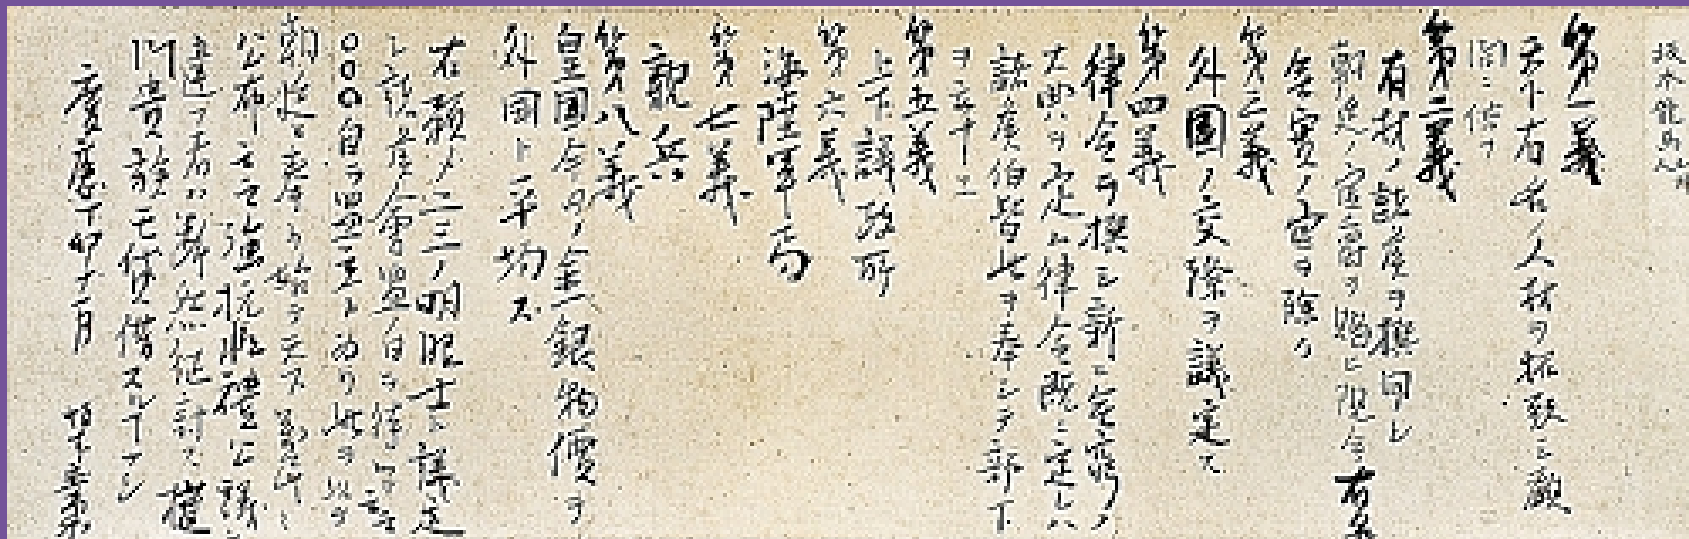 坂本龍馬
第一義
天下有名ノ人材ヲ招致シ顧
問ニ供フ
第二義
有材ノ諸侯ヲ撰用シ
朝廷ノ官爵ヲ賜ヒ現今有名
無實ノ官ヲ除ク
第三義
外國ノ交際ヲ議定ス
第四義
律令ヲ撰シ新ニ無窮ノ
大典ヲ定ム律令既ニ定レハ
諸侯伯皆此ヲ奉シテ部下
ヲ率ユ
第五義
上下議政所
第六義
海陸軍局
第七義
親兵
第八義
皇國今日ノ金銀物價ヲ
外國ト平均ス
右預メ二三ノ明眼士ト議定
シ諸侯會盟ノ日ヲ待ツテ云云
○○○自ラ盟主ト為リ此ヲ以テ
朝廷ニ奉リ始テ天下萬民ニ
公布云云強抗非禮公議ニ
違フ者ハ断然征討ス權
門貴族モ貸借スルコトナシ
慶應丁卯十一月 坂本直柔